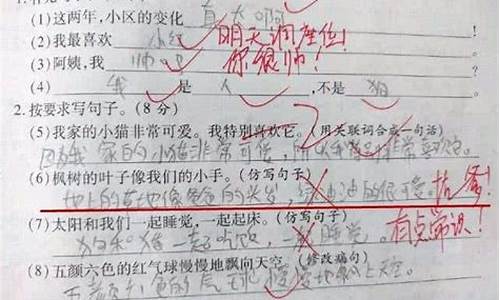 (1)这两年,小区的变化 真大啊
(2)我最喜欢 小红 明天调座位!
(3)阿姨,我 帅吧 你很帅!
(4) 我 是 人 ,不是 狗
2. 按要求写句子。(8 分)
(5)我家的小猫非常可爱。我特别喜欢它。(用关联词合成一句话)
因为我家的小猫非常可爱,所以我非常喜欢它。
(6)枫树的叶子像我们的小手。(仿写句子)
地上的草地像爸爸的头发,绿油油的很可爱。抗爹!
(7)太阳和我们一起睡觉,一起起床。(仿写句子)
狗和猪一起吃饭,一起睡觉。有点常识!
(8)五颜六色的红气球慢慢地飘向天空。(修改病句)
五颜六色的气球慢慢地飘上天空。